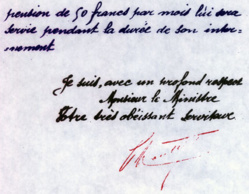 pension de 50 francs par mois lui sera
servie pendant la durée de son inter-
nement
Je suis, avec un profond respect
Monsieur le Ministre
Votre très obéissant serviteur